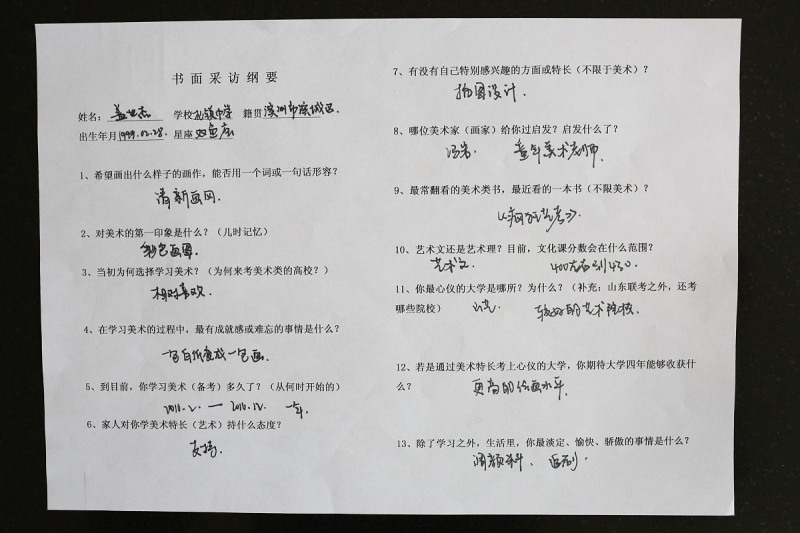 书面采访纲要
姓名：盖世杰 学校孔镇中学 籍贯滨州市滨城区.
出生年月1999.02.28. 星座双鱼座
1、希望画出什么样子的画作，能否用一个词或一句话形容？
清新画风.
2、对美术的第一印象是什么？（儿时记忆）
彩色画图.
3、当初为何选择学习美术？（为何来考美术类的高校？）
相对喜欢.
4、在学习美术的过程中，最有成就感或难忘的事情是什么？
白纸变成一包画.
5、到目前，你学习美术（备考）多久了？（从何时开始的）
2016.2. — 2016.12. 一年.
6、家人对你学美术特长（艺术）持什么态度？
支持.
7、有没有自己特别感兴趣的方面或特长（不限于美术）？
插图设计.
8、哪位美术家（画家）给你过启发？启发什么了？
冯岩. 童年美术老师.
9、最常翻看的美术类书，最近看的一本书（不限美术）？
10、艺术文还是艺术理？目前，文化课分数会在什么范围？
艺术文. 400左右到430.
11、你最心仪的大学是哪所？为什么？（补充：山东联考之外，还考
哪些院校） 山艺. 较好的艺术院校.
12、若是通过美术特长考上心仪的大学，你期待大学四年能够收获什
么？ 更高的绘画水平.
13、除了学习之外，生活里，你最淡定、愉快、骄傲的事情是什么？
调颜料、追剧.